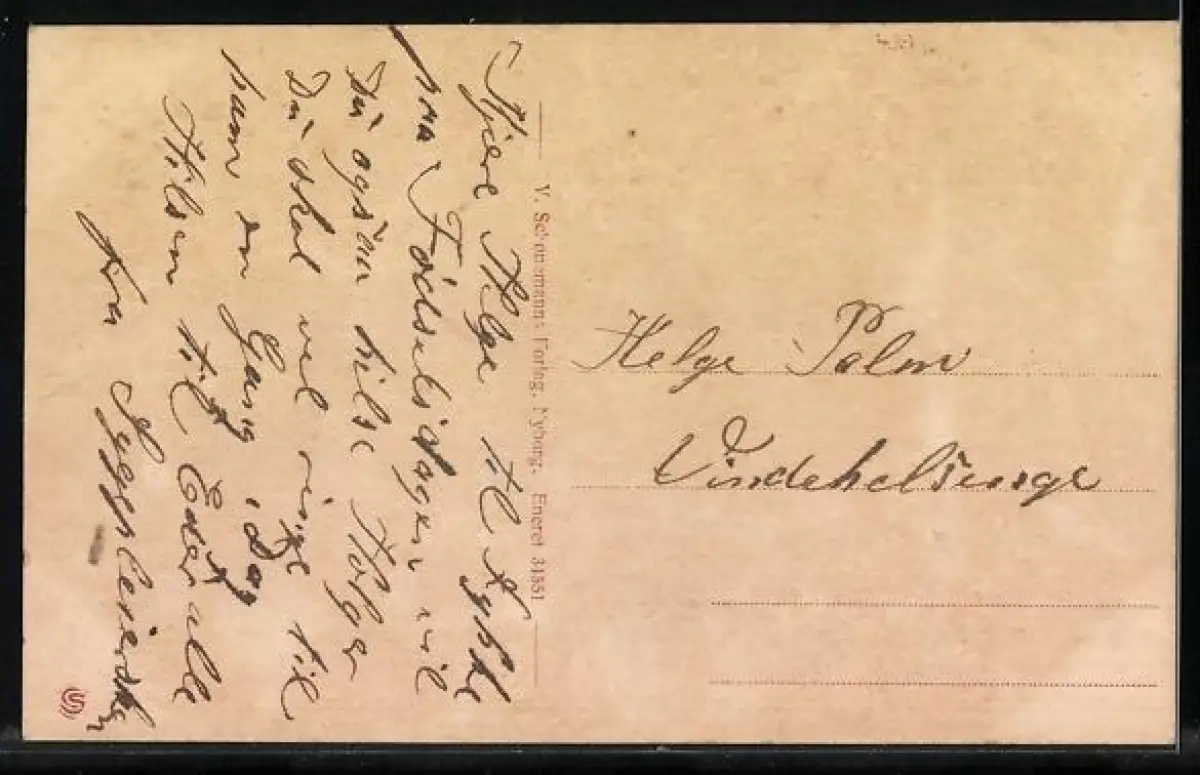 Kjære Helge til Lykke
paa Fødselsdagen vil
Du ogsaa hilse Holger
Du skal vel ringe til
ham en Gang i Dag
Hilsen til Eder alle
fra
V. Schønemanns Forlag. Nyborg. Eneret 34551
Helge Palm
Vindehelsinge